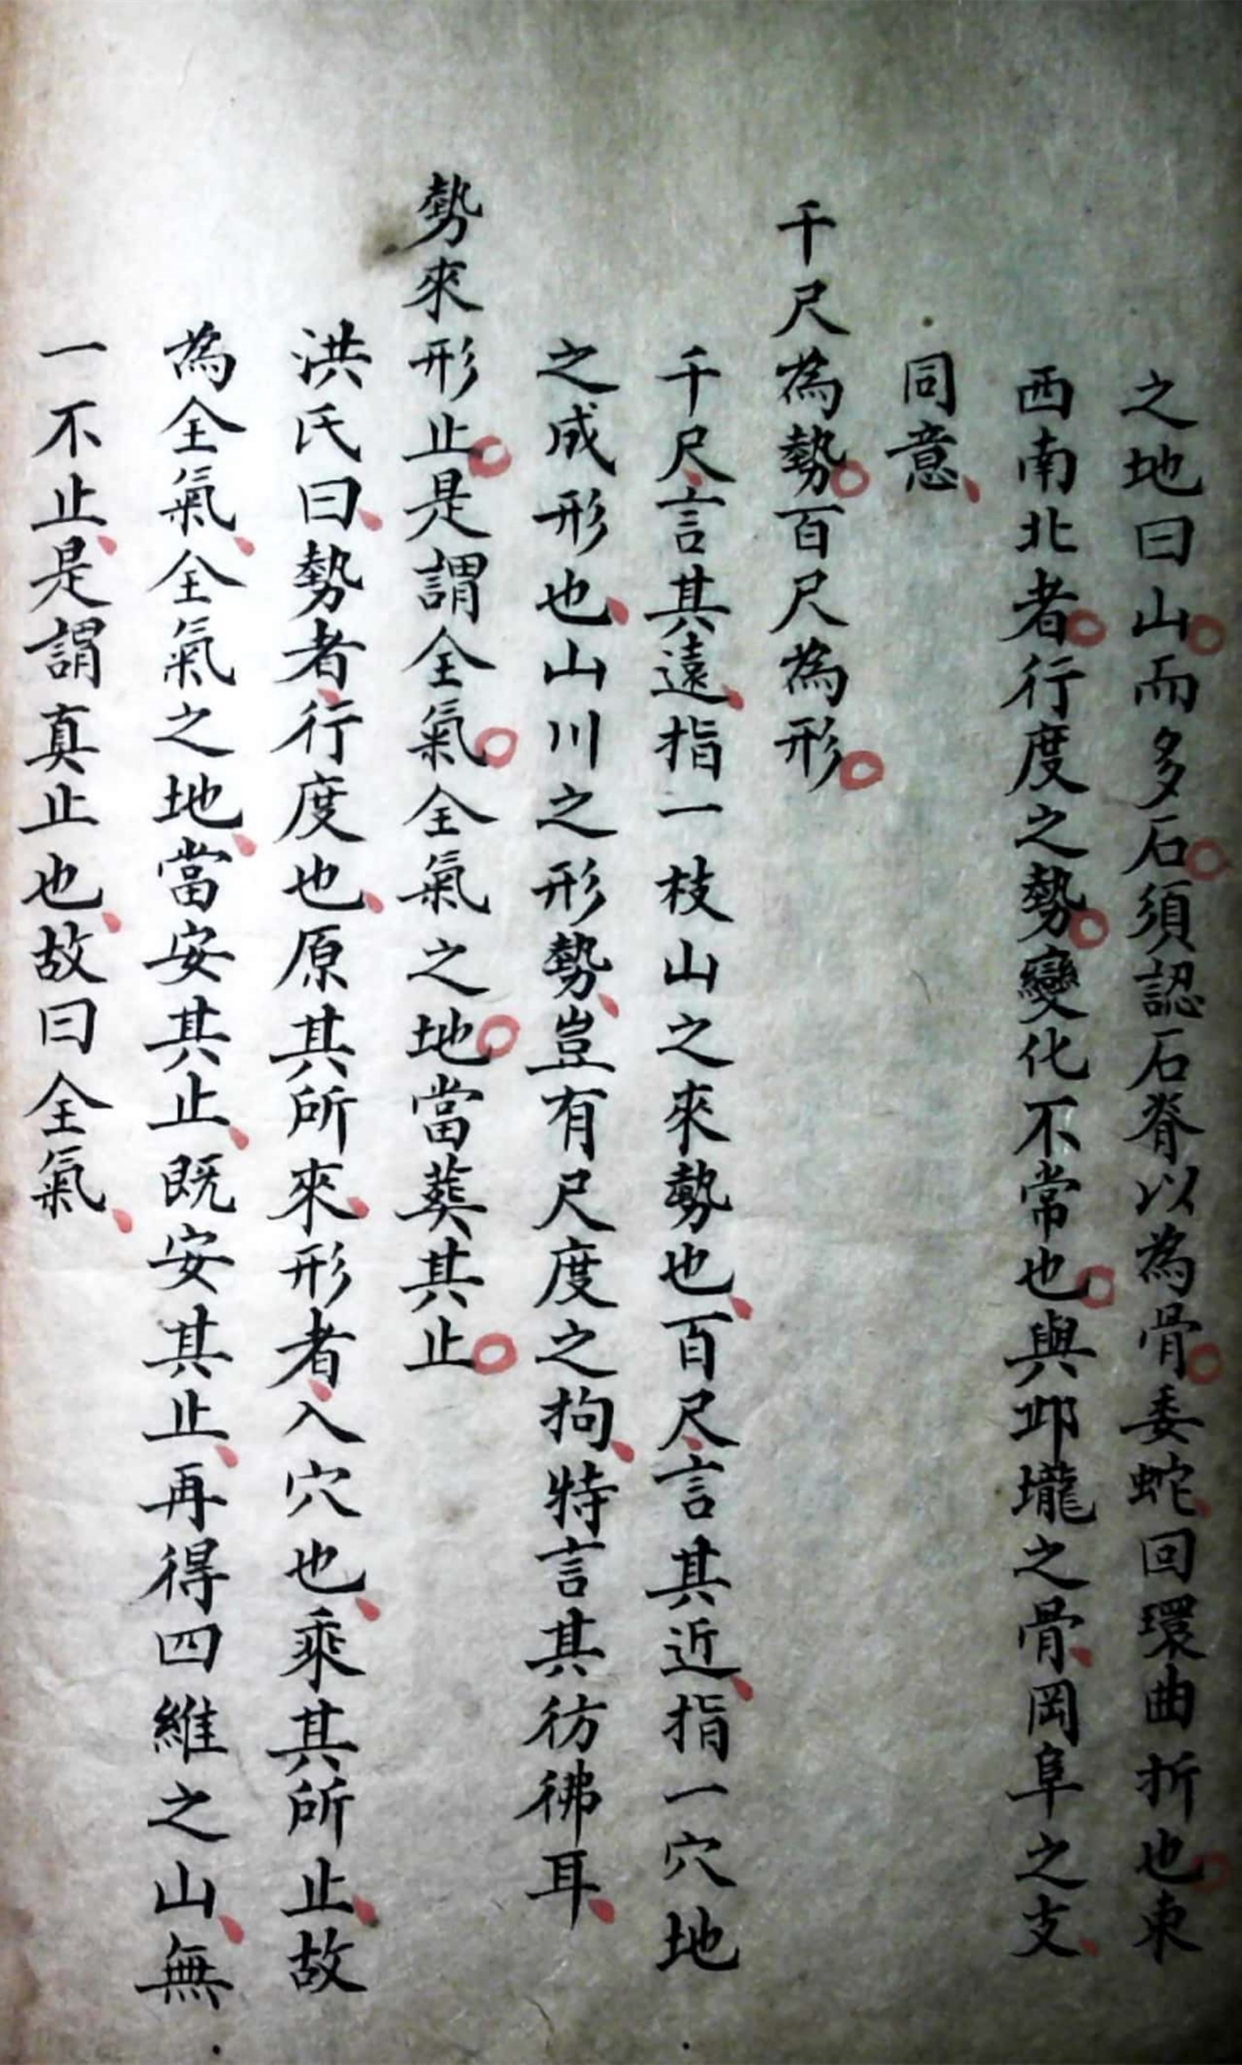 之地曰山而多石須認石脊以為骨委蛇回環曲折也東
西南北者行度之勢變化不常也與邱壠之骨岡阜之支
同意
千尺為勢百尺為形
千尺言其遠指一枝山之來勢也百尺言其近指一穴地
之成形也山川之形勢豈有尺度之拘特言其彷彿耳
勢來形止是謂全氣全氣之地當葬其止
洪氏曰勢者行度也原其所來形者入穴也乘其所止故
為全氣全氣之地當安其止既安其止再得四維之山無
一不止是謂真止也故曰全氣